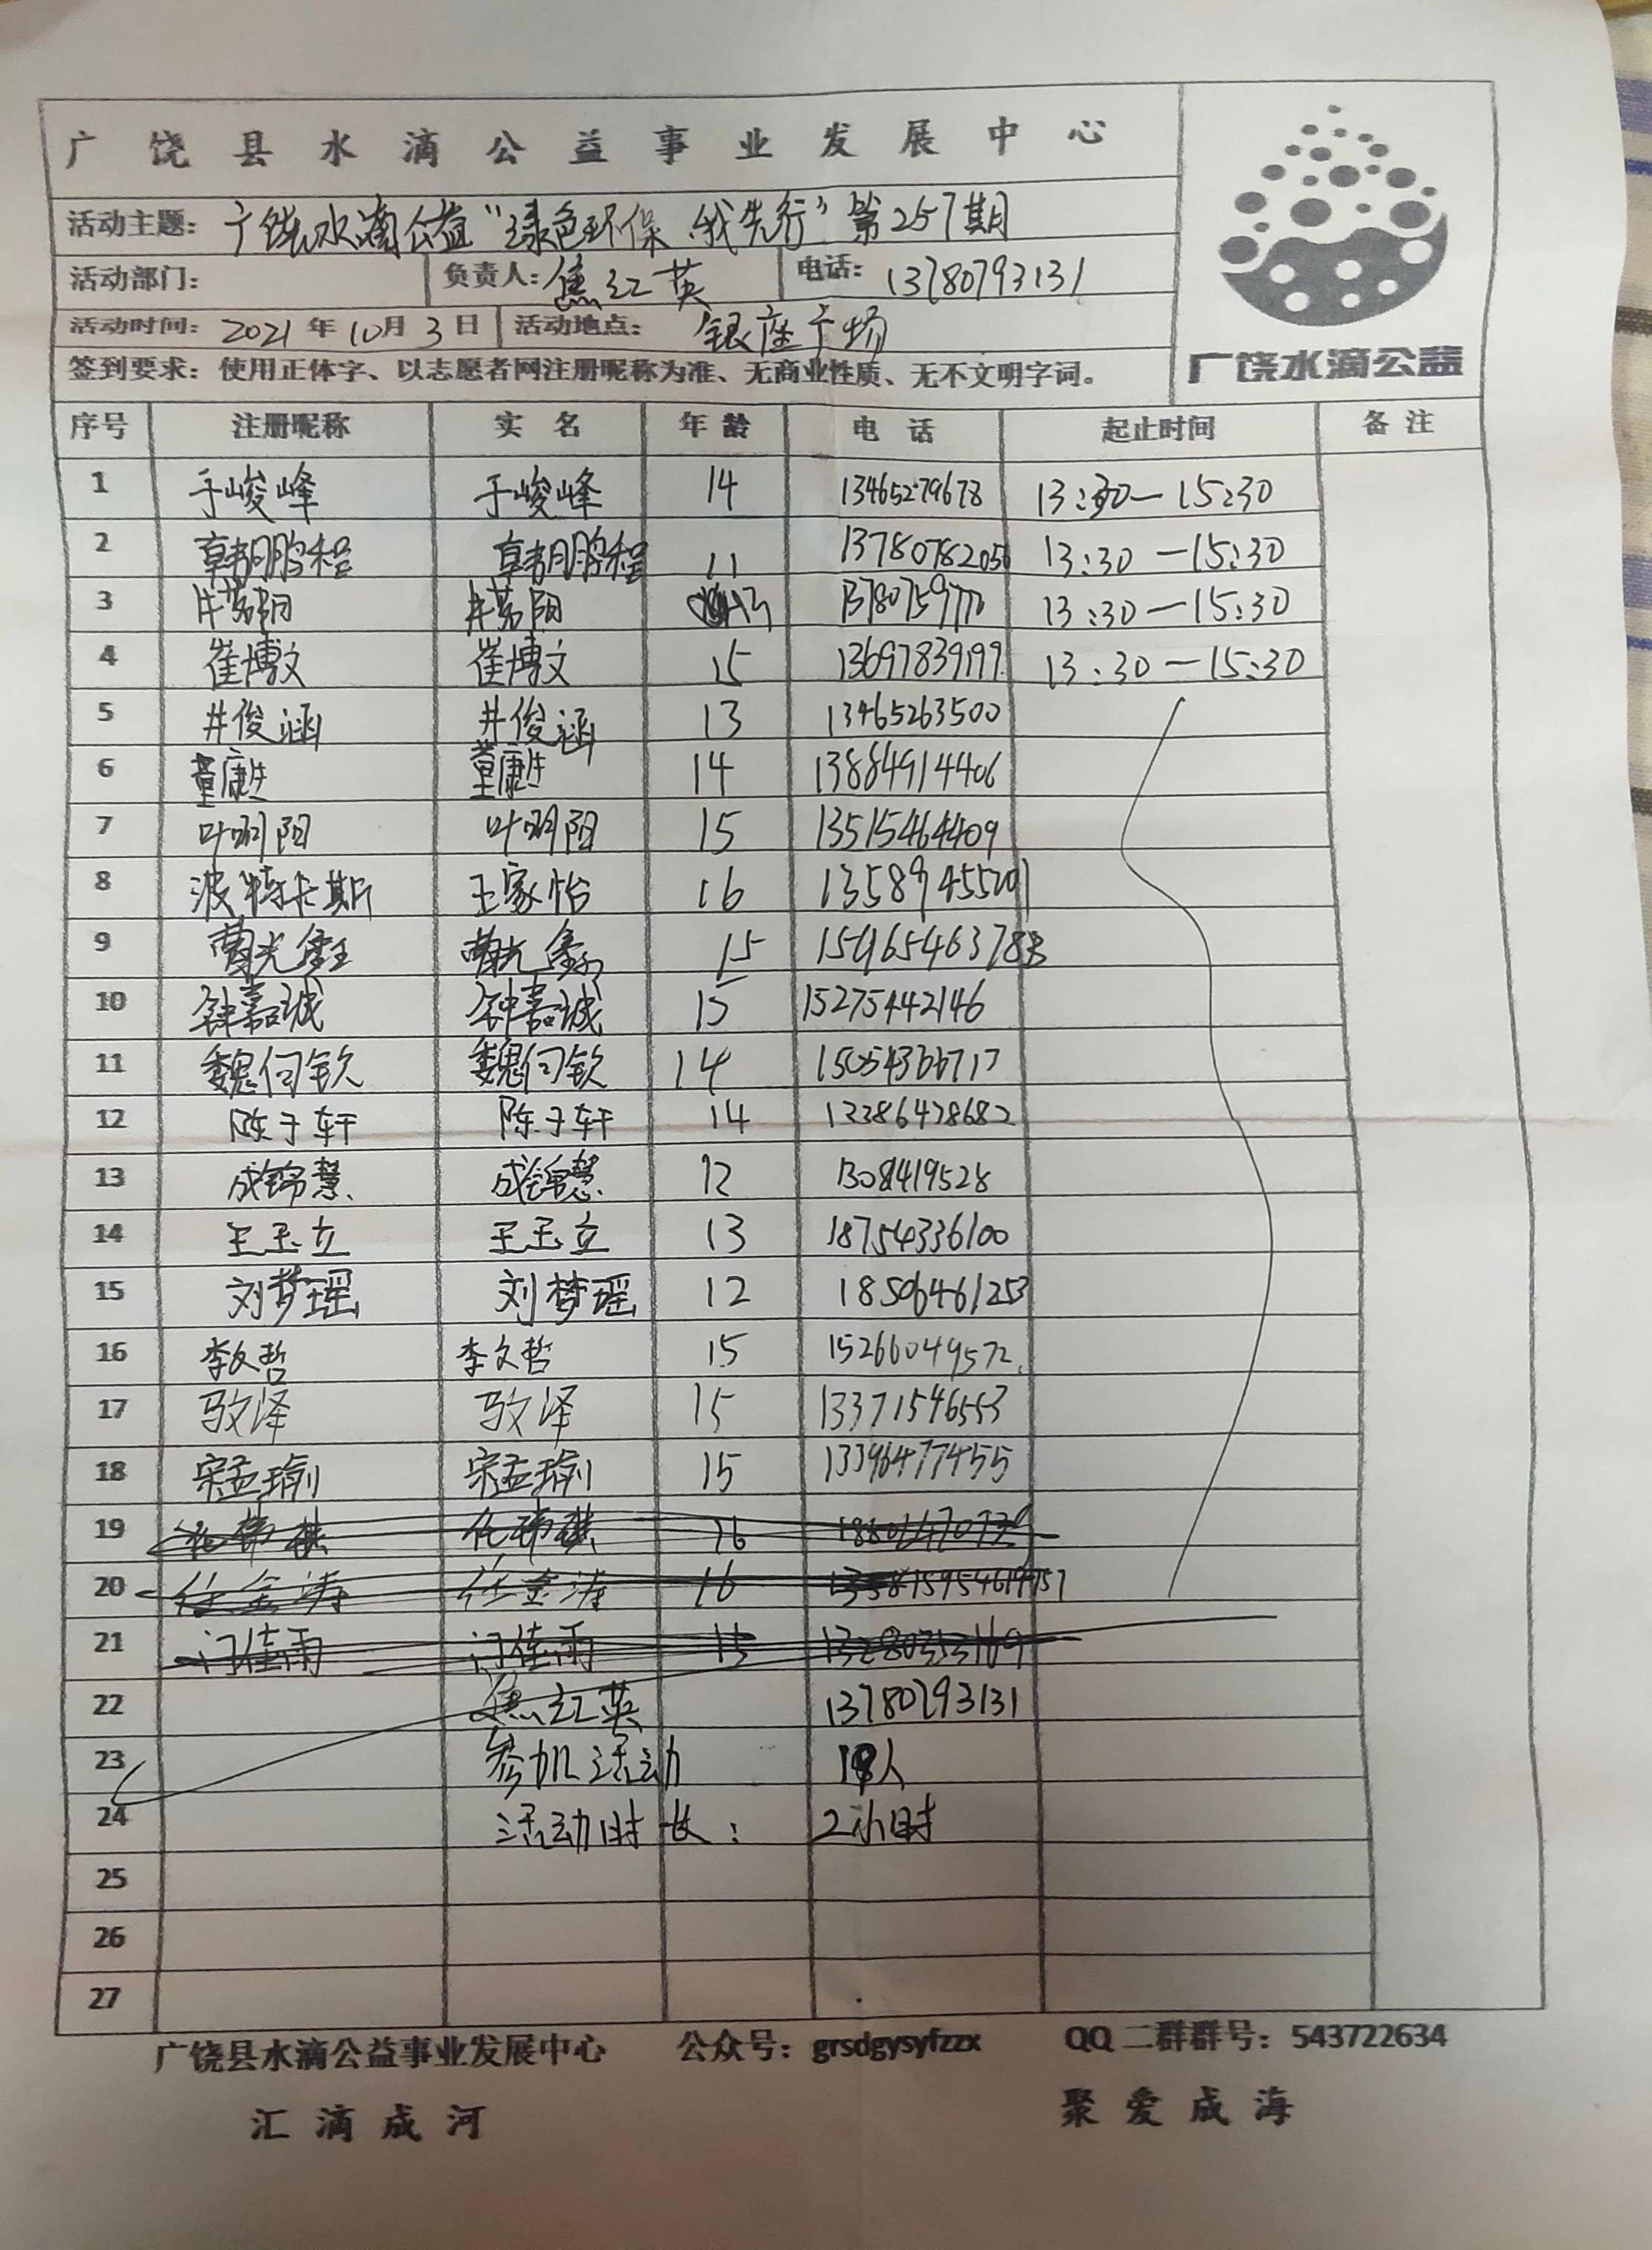 广饶县水滴公益事业发展中心
活动主题：广饶水滴公益“绿色环保，我先行”第257期
活动部门： 负责人：焦红英 电话：13780793131
活动时间：2021年10月3日 活动地点：银座广场
签到要求：使用正体字、以志愿者网注册昵称为准、无商业性质、无不文明字词。
广饶水滴公益
序号 注册昵称 实名 年龄 电话 起止时间 备注
1 于峻峰 于峻峰 14 13465279678 13:30—15:30
2 韩鹏程 韩鹏程 11 13:30—15:30
3 13:30—15:30
4 崔博文 崔博文 15 13697839199 13:30—15:30
5 井俊涵 井俊涵 13 13465263500
6 董康生 董康生 14 13884914406
7 叶明阳 叶明阳 15 13515464409
8 波特卡斯 王家怡 16
9 15
10 钟嘉诚 钟嘉诚 15 15275442146
11 魏何钦 魏何钦 14
12 陈子轩 陈子轩 14
13 成锦慧 成锦慧 12
14 王玉立 王玉立 13 18754336100
15 刘梦瑶 刘梦瑶 12 18506461253
16 李文哲 李文哲 15 15266049572
17 15 13371546553
18 宋孟瑜 宋孟瑜 15 13396477455
19 16
20 任金涛 任金涛 16
21 门佳雨 门佳雨
22 焦红英 13780793131
23 参加活动 人
24 活动时长： 2小时
25
26
27
广饶县水滴公益事业发展中心 公众号：grsdgysyfzzx QQ二群群号：543722634
汇滴成河 聚爱成海